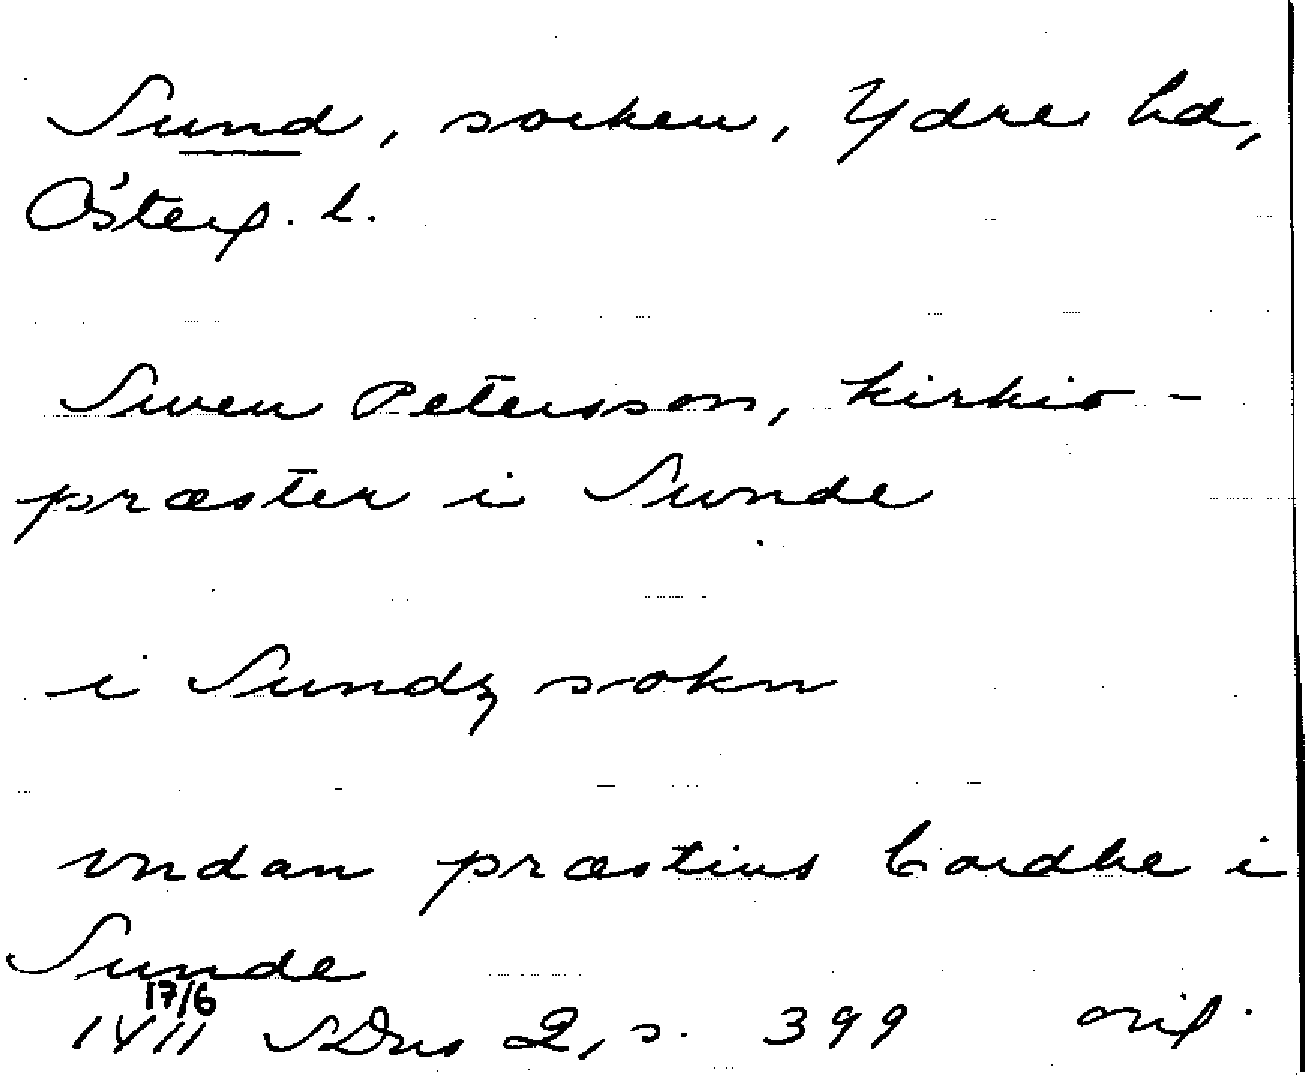 Sund, socken, Ydre hd,
Österg. l.
Swen Petersson, kirkio-
præster i Swnde
i Sundz sokn
vndan præstins bordhe i
Sunde
17/6
1411 SDns 2, s. 399 orig.